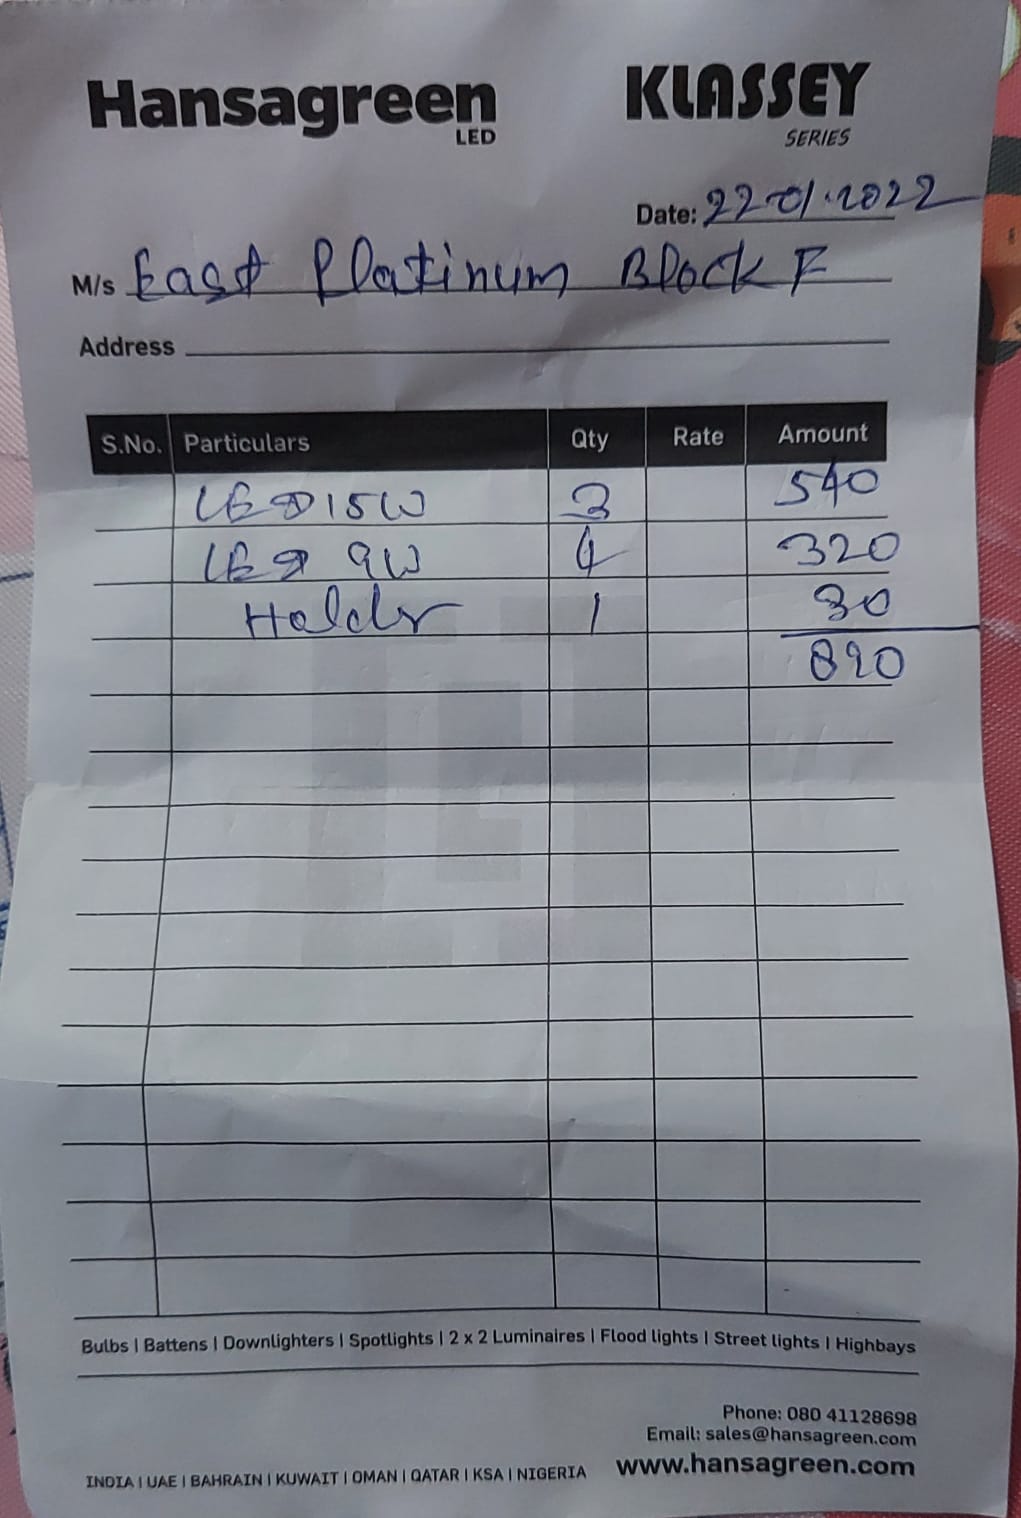 Hansagreen KLASSEY
LED SERIES
Date: 22-01.2022
M/s East Platinum Block F
Address
S.No. Particulars Qty Rate Amount
LED 15W 3 540
LED 9W 4 320
Holder 1 30
890
Bulbs | Battens | Downlighters | Spotlights | 2 x 2 Luminaires | Flood lights | Street lights | Highbays
Phone: 080 41128698
Email: sales@hansagreen.com
INDIA | UAE | BAHRAIN | KUWAIT | OMAN | QATAR | KSA | NIGERIA www.hansagreen.com